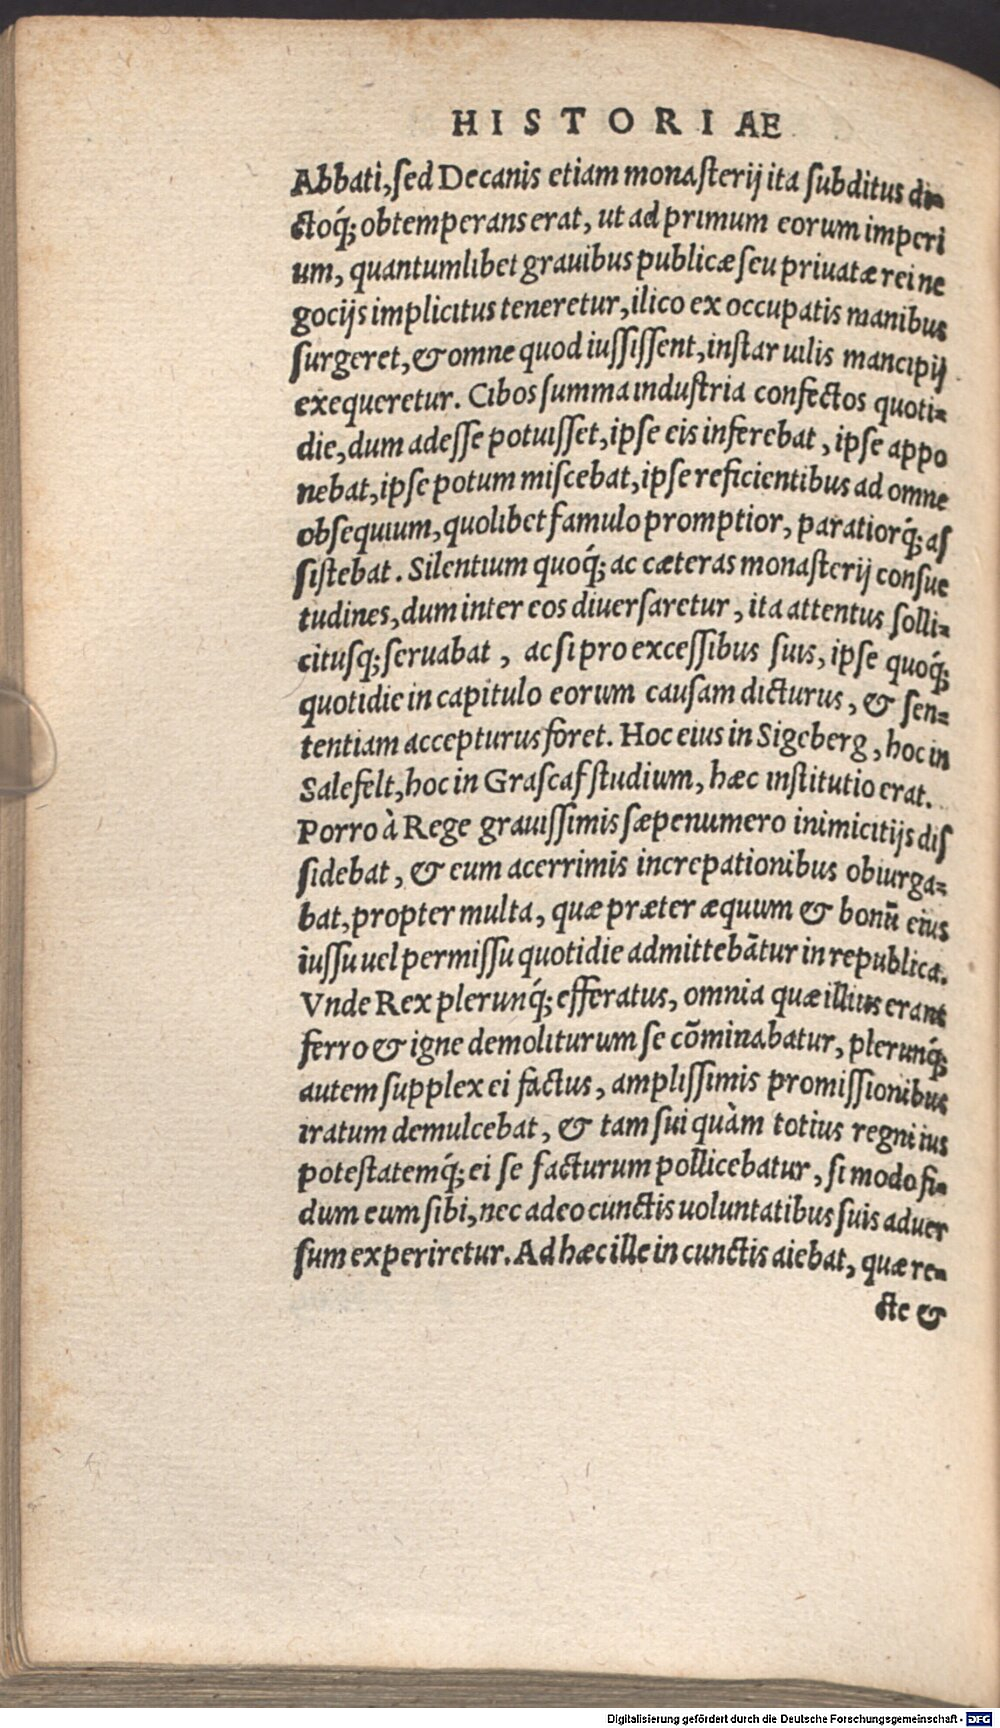 HISTORIAE
Abbati, ſed Decanis etiam monaſterij ita ſubditus di=
ctoq́; obtemperans erat, ut ad primum eorum imperi
um, quantumlibet grauibus publicæ ſeu priuatæ rei ne
gocijs implicitus teneretur, ilico ex occupatis manibus
ſurgeret, & omne quod iuſſiſſent, inſtar uilis mancipij
exequeretur. Cibos ſumma induſtria confectos quoti=
die, dum adeſſe potuiſſet, ipſe eis inferebat, ipſe appo
nebat, ipſe potum miſcebat, ipſe reficientibus ad omne
obſequium, quolibet famulo promptior, paratiorq́; aſ
ſiſtebat. Silentium quoq́; ac cæteras monaſterij conſue
tudines, dum inter eos diuerſaretur, ita attentus ſolli=
citusq́; ſeruabat, ac ſi pro exceſſibus ſuis, ipſe quoq́;
quotidie in capitulo eorum cauſam dicturus, & ſen=
tentiam accepturus foret. Hoc eius in Sigeberg, hoc in
Salefelt, hoc in Graſcaf ſtudium, hæc inſtitutio erat.
Porro à Rege grauiſſimis ſæpenumero inimicitijs diſ
ſidebat, & eum acerrimis increpationibus obiurga=
bat, propter multa, quæ præter æquum & bonū eius
iuſſu uel permiſſu quotidie admittebātur in republica.
Vnde Rex plerunq́; efferatus, omnia quæ illius erant
ferro & igne demoliturum ſe cōminabatur, plerunq́;
autem ſupplex ei factus, ampliſſimis promiſſionibus
iratum demulcebat, & tam ſui quàm totius regni ius
poteſtatemq́; ei ſe facturum pollicebatur, ſi modo fi=
dum eum ſibi, nec adeo cunctis uoluntatibus ſuis aduer
ſum experiretur. Ad hæc ille in cunctis aiebat, quæ re=
cte &
Digitalisierung gefördert durch die Deutsche Forschungsgemeinschaft - DFG